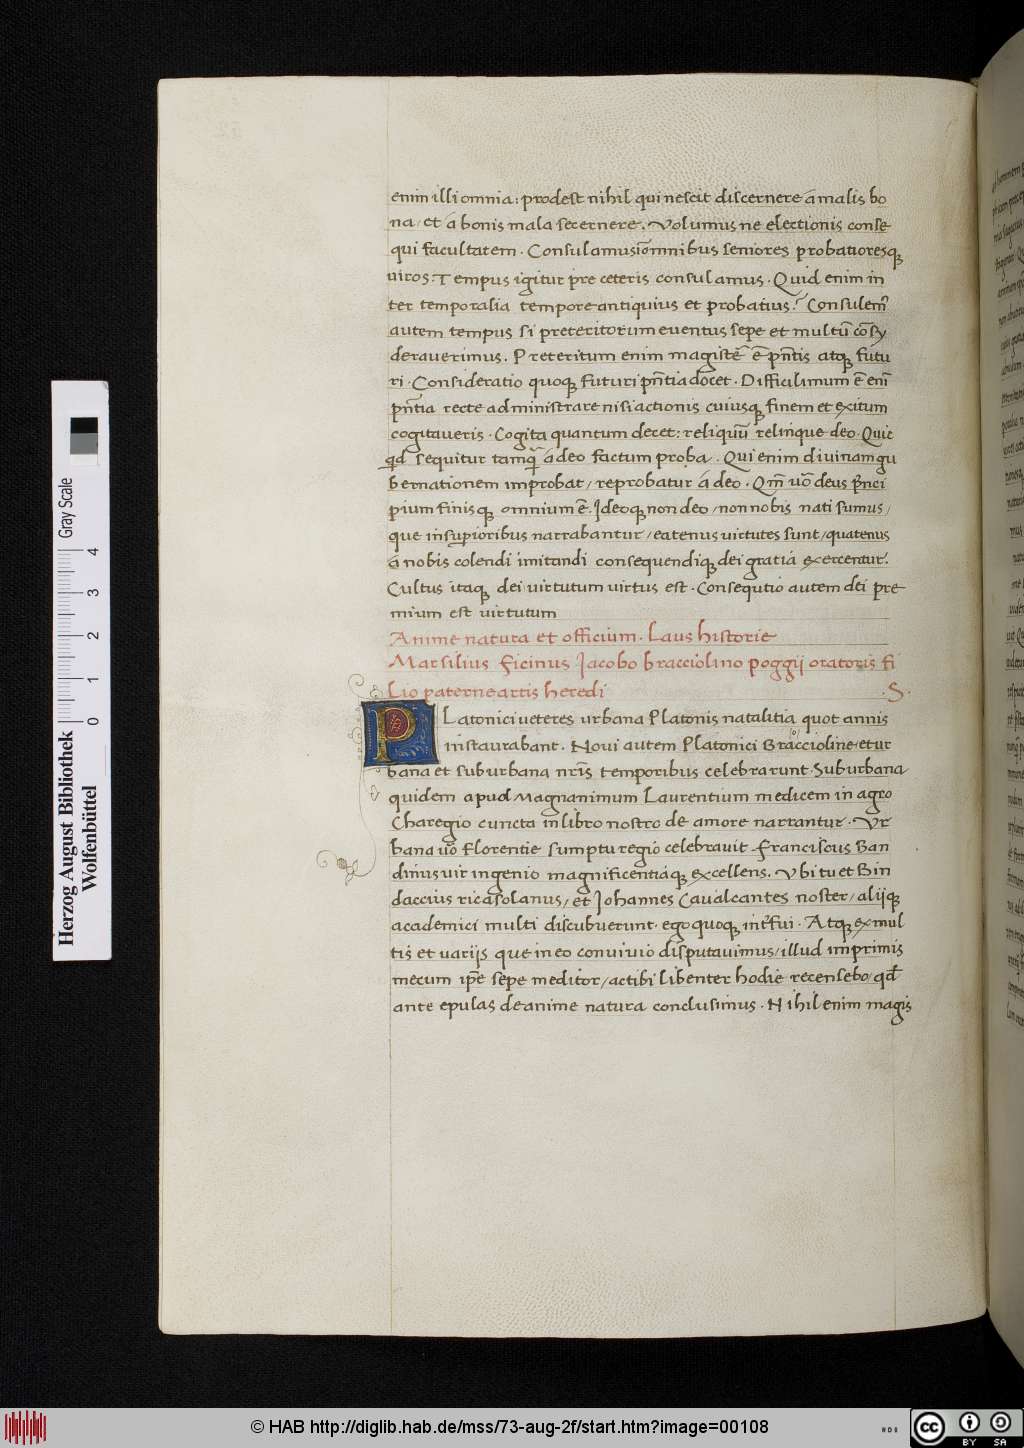 enim illi omnia: prodest nihil qui nescit discernere á malis bo
na, et á bonis mala secernere. Volumus ne electionis conse
qui facultatem. Consulamus ī omnibus seniores probatioresq̨
viros. Tempus igitur pre ceteris consulamus. Quid enim in
ter temporalia tempore antiquius et probatius? Consulem᷑
autem tempus si preteritorum eventus sepe et multū cōsy
deraverimus. Preteritum enim magistẽ ē pñtis atq̨ futu
ri. Consideratio quoq̨ futuri pñtia docet. Difficilimum ē enī
pñtia recte administrare nisi actionis cuiusq̨ finem et exitum
cogitaveris. Cogita quantum decet: reliquū relinque deo. Quic
qd̄ sequitur tamq̄ á deo factum proba. Qui enim divinam gu
bernationem improbat, reprobatur á deo. Qm̄ uō deus prīnci
pium finisq̨ omnium ē. Ideoq̨ non deo, non nobis nati sumus,
que in supioribus narrabantur, eatenus virtutes sunt, quatenus
á nobis colendi imitandi consequendiq̨ dei gratia exercentur.
Cultus itaq̨ dei virtutum virtus est. Consequtio autem dei pre
mium est virtutum
Anime natura et officium. Laus historie
Marsilius Ficinus Jacobo bracciolino poggij oratoris fi
lio paterne artis heredi .S.
PLatonici veteres urbana Platonis natalitia quot annis
instaurabant. Novi autem Platonici Braccioline et ur
bana et suburbana nr̄is temporibus celebrarunt. Suburbana
quidem apud Magnanimum Laurentium medicem in agro
Charegio cuncta in libro nostro de amore narrantur. Ur
bana uō Florentie sumptu regio celebravit Franciscus Ban
dinus vir ingenio magnificentiaq̨ excellens. Ubi tu et Bin
daccius ricasolanus, et Johannes Cavalcantes noster, alijq̨
academici multi discubuerunt. ego quoq̨ int̄fui. Atq̨ ex mul
tis et varijs que in eo convivio disputavimus, illud imprimis
mecum ip̄e sepe meditor, ac tibi libenter hodie recensebo, qd̄
ante epulas de anime natura conclusimus. Nihil enim magis
Herzog August Bibliothek
Wolfenbüttel
Gray Scale
0 1 2 3 4
© HAB http://diglib.hab.de/mss/73-aug-2f/start.htm?image=00108
cc BY SA